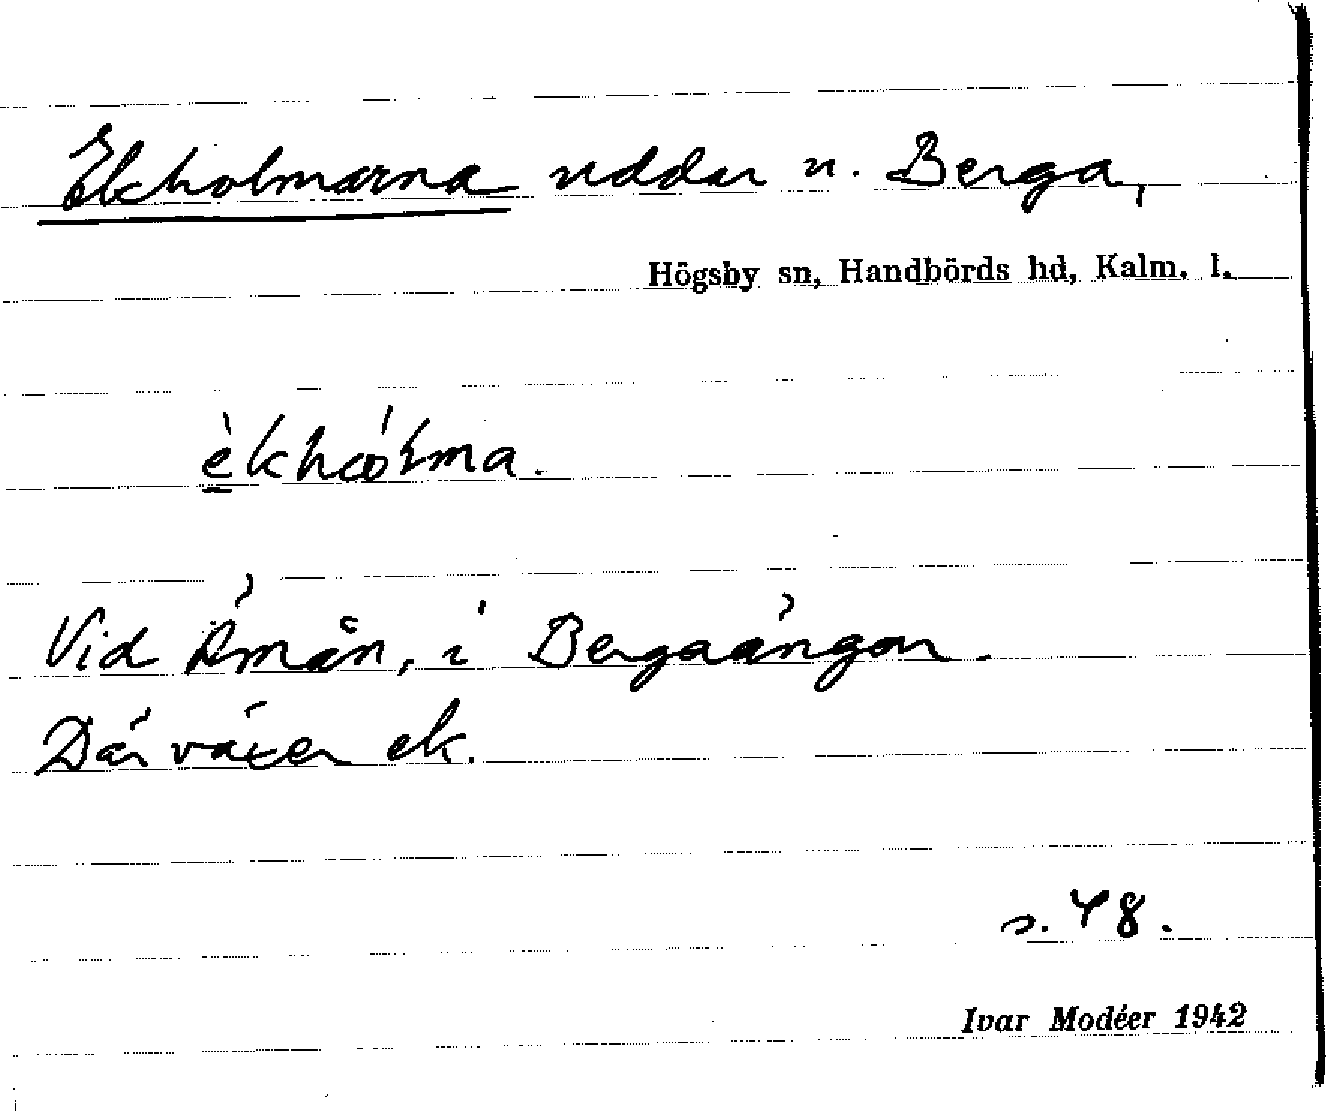 Ekholmarna uddar u. Berga,
Högsby sn, Handbörds hd, Kalm. l.
Vid Åmån, i Bergaängar.
Där växer ek.
s. 48.
Ivar Modéer 1942